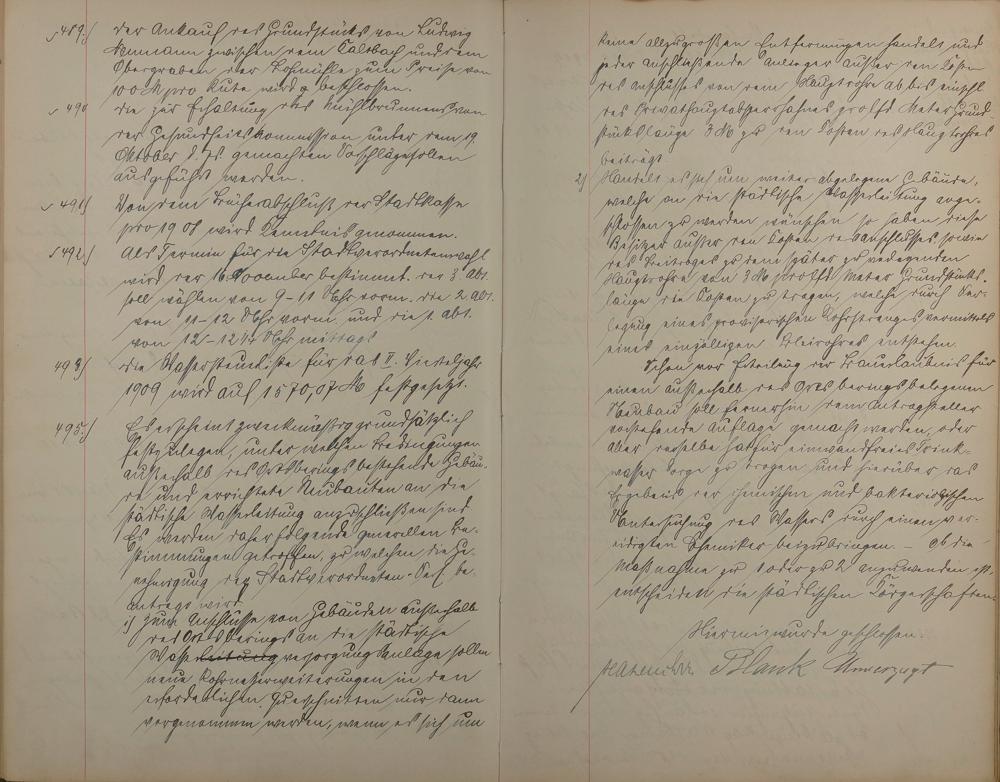 489/ der Ankauf des Grundstücks von Ludwig
zwischen dem Talbach und dem
Obergraben der Lohmühle zum Preise von
100 M pro Rute wird beschlossen.
490 die zur Erhaltung des Mühlbrunnens von
der Gesundheitskommission unter dem 19.
Oktober d. Js. gemachten Vorschläge sollen
ausgeführt werden.
491/ Von dem Bücherabschluß der Stadtkasse
pro 1908 wird Kenntnis genommen.
492/ Als Termin für die Stadtverordnetenwahl
wird der 16. November bestimmt. der 3. Abt.
soll wählen von 9-11 Uhr vorm. die 2 Abt.
von 11-12 Uhr vorm. und die 1. Abt.
von 12-12 1/2 Uhr mittags
493/ die Wasserzinsliste für das II. Vierteljahr
1909 wird auf 1570,07 M festgesetzt.
495./ Es erscheint zweckmäßig grundsätzlich
festzulegen, unter welchen Bedingungen
außerhalb des Ortsberings bestehende Gebäu-
de und errichtete Neubauten an die
städtische Wasserleitung anzuschließen sind
Es werden daher folgende generellen Be-
stimmungen getroffen, zu welchen die Ge-
nehmigung der Stadtverordneten-Vers. be-
antragt wird.
1) Zum Anschlusse von Gebäuden außerhalb
des Ortsberings an die städtische
Wasserleitung versorgungsanlage sollen
neue Rohrnetzerweiterungen in den
erforderlichen Querschnitten nur dann
vorgenommen werden, wenn es sich um
keine allzugroßen Entfernungen handelt und
jeder anschließende Anlieger außer den Kosten
des Anschlusses von dem Hauptrohre ab bis einschl.
des Privathauptabsperrhahnes pro lfd Meter Grund-
stückslänge 3 M zu den Kosten des Hauptrohres
beiträgt.
2) Handelt es sich um weiter abgelegene Gebäude,
welche an die städtische Wasserleitung ange-
schlossen zu werden wünschen so haben diese
Besitzer außer den Kosten des Anschlusses, sowie
des Beitrages zu dem später zu verlegenden
Hauptrohre von 3 M pro lfd Meter Grundstücks-
länge die Kosten zu tragen, welche durch Ver-
legung eines provisorischen Rohrstranges vermittels
eines einzölligen Bleirohres entstehen.
Schon vor Erteilung der Bauerlaubnis für
einen außerhalb des Ortsberings belegenen
Neubau soll fernerhin dem Antragsteller
vorstehende Auflage gemacht werden, oder
aber derselbe hat für einwandfreies Trink-
wasser Sorge zu tragen und hierüber das
Ergebnis der chemischen und bakteriologischen
Untersuchung des Wassers durch einen ver-
eidigten Chemiker beizubringen. – Ob die
Maßnahme zu 1 oder zu 2 anzuwenden ist,
entscheiden die städtischen Körperschaften.
Hiermit wurde geschlossen.
Blank Unverzagt